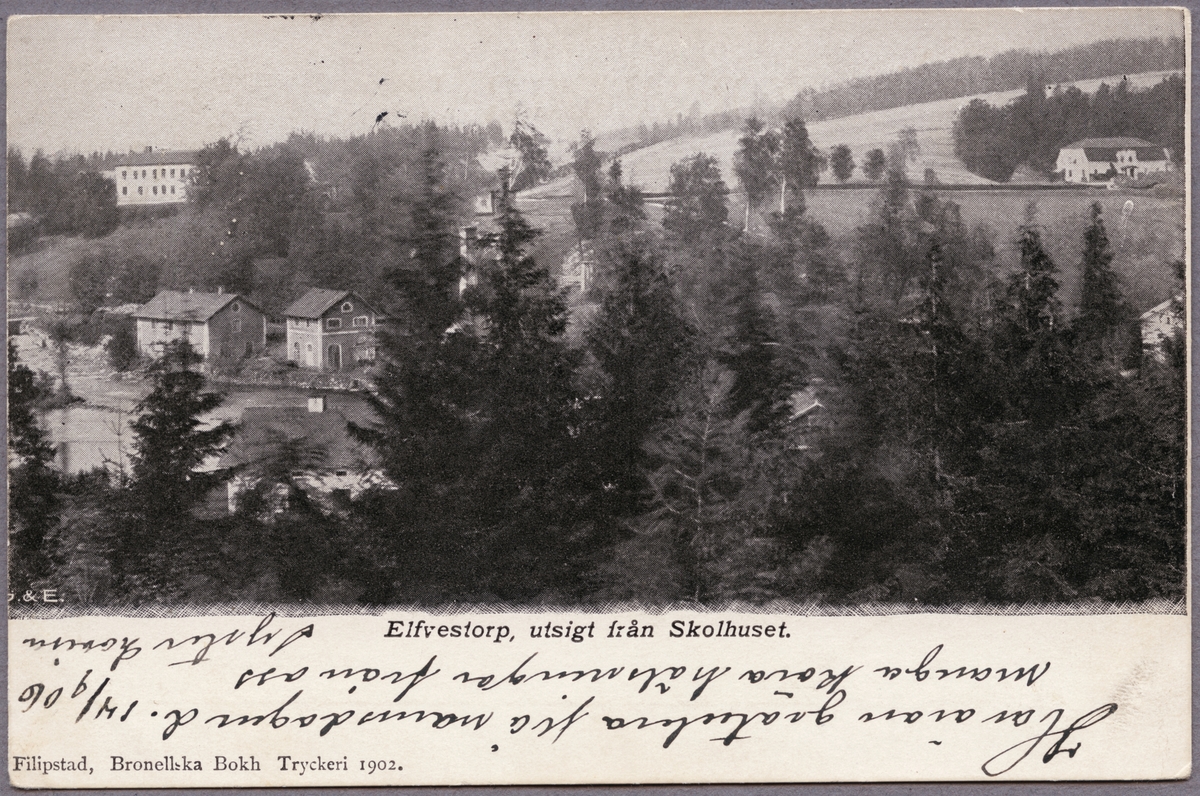 . & E.
Elfvestorp, utsigt från Skolhuset.
Har äran gratulera på namsdagen d. 14/9 06
många kära hälsningar från oss
Syster Lovisa
Filipstad, Bronellska Bokh Tryckeri 1902.